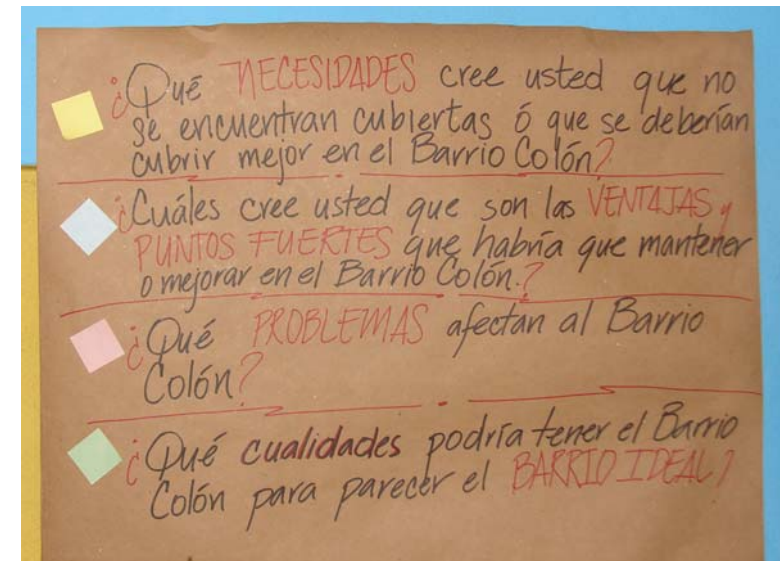 ¿Qué NECESIDADES cree usted que no
se encuentran cubiertas ó que se deberían
cubrir mejor en el Barrio Colón?
¿Cuáles cree usted que son las VENTAJAS y
PUNTOS FUERTES que habría que mantener
o mejorar en el Barrio Colón.?
¿Qué PROBLEMAS afectan al Barrio
Colón?
¿Qué cualidades podría tener el Barrio
Colón para parecer el BARRIO IDEAL?